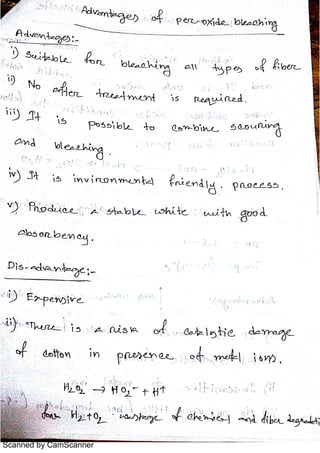 Advantages of per-oxide bleaching
Advantages:-
i) Suitable for bleaching all types of fiber.
ii) No after treatment is required.
iii) It is possible to combine scouring
and bleaching.
iv) It is invironmental friendly process.
v) Produce a stable white with good
absorbency.
Dis-advantage:-
i) Expensive
ii) There is a risk of catalstic damage
of cotton in presence of metal ions.
H₂O₂ → HO₂⁻ + H⁺
H₂+O₂ wastage of chemical and fiber
Scanned by CamScanner